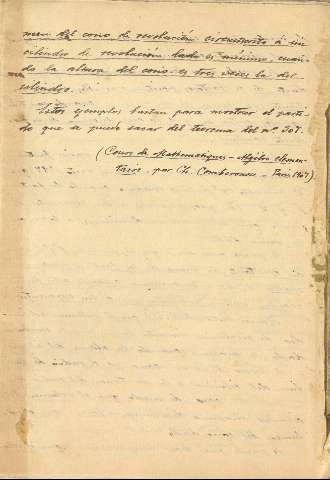 men del cono de revolución circunscrito á un
cilindro de revolución dado es mínimo, cuan-
do la altura del cono es tres veces la del
cilindro.
Estos ejemplos bastan para mostrar el parti-
do que se puede sacar del teorema del nº 307.
(Cours de Mathématiques - Algèbre élémen-
taire, par Ch. Comberousse - Paris